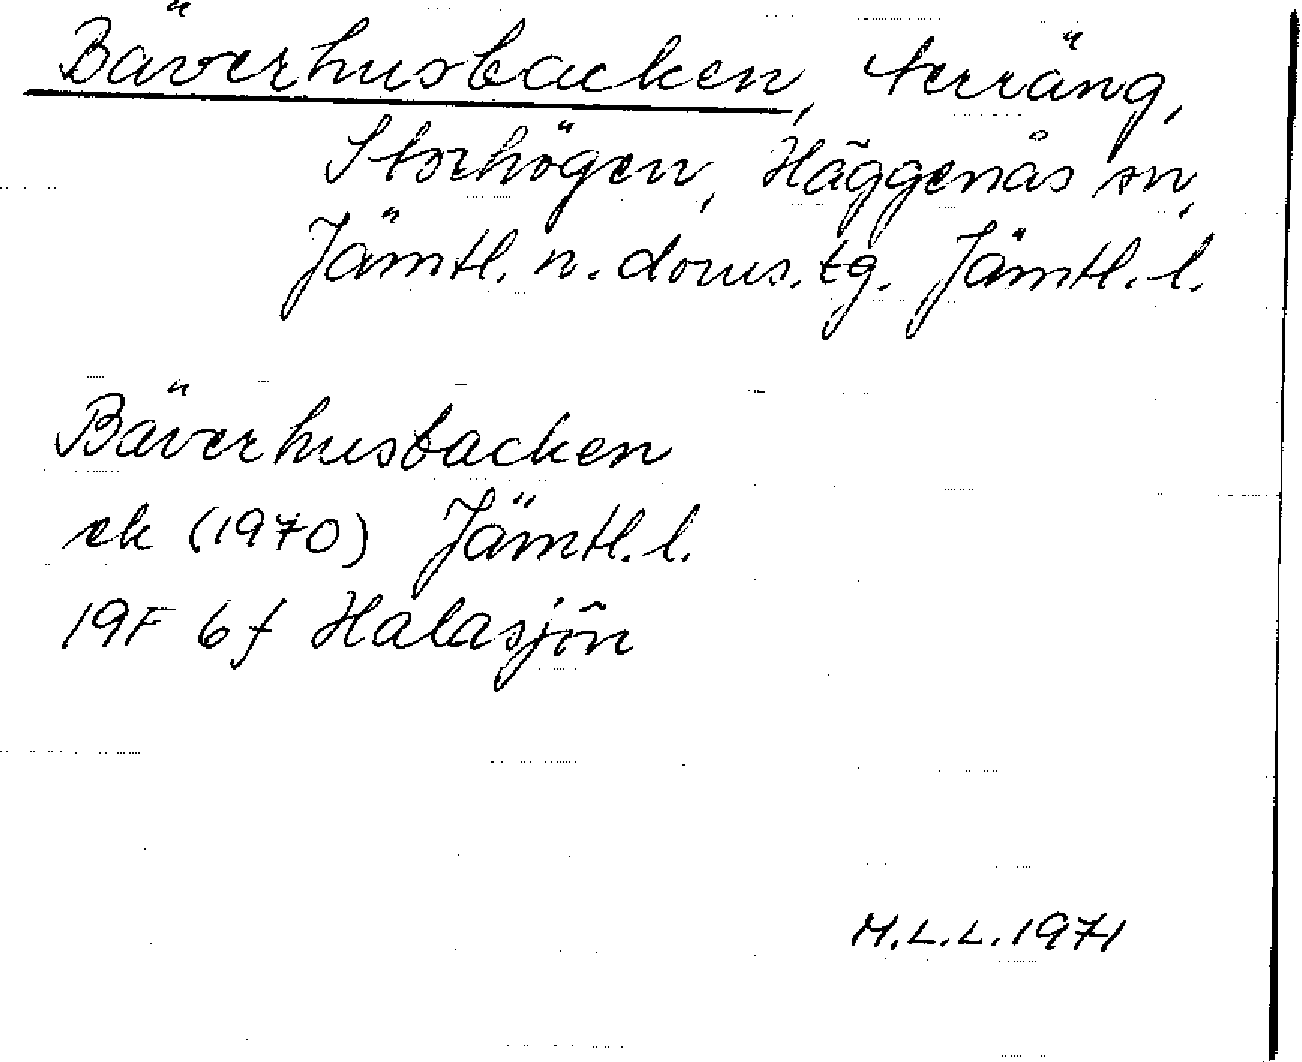 Bäverhusbacken, terräng,
Storhögen, Häggenås sn,
Jämtl. n. doms. tg. Jämtl. l.
Bäverhusbacken
ek (1970) Jämtl. l.
19F 6f Halasjön
M.L.L. 1971